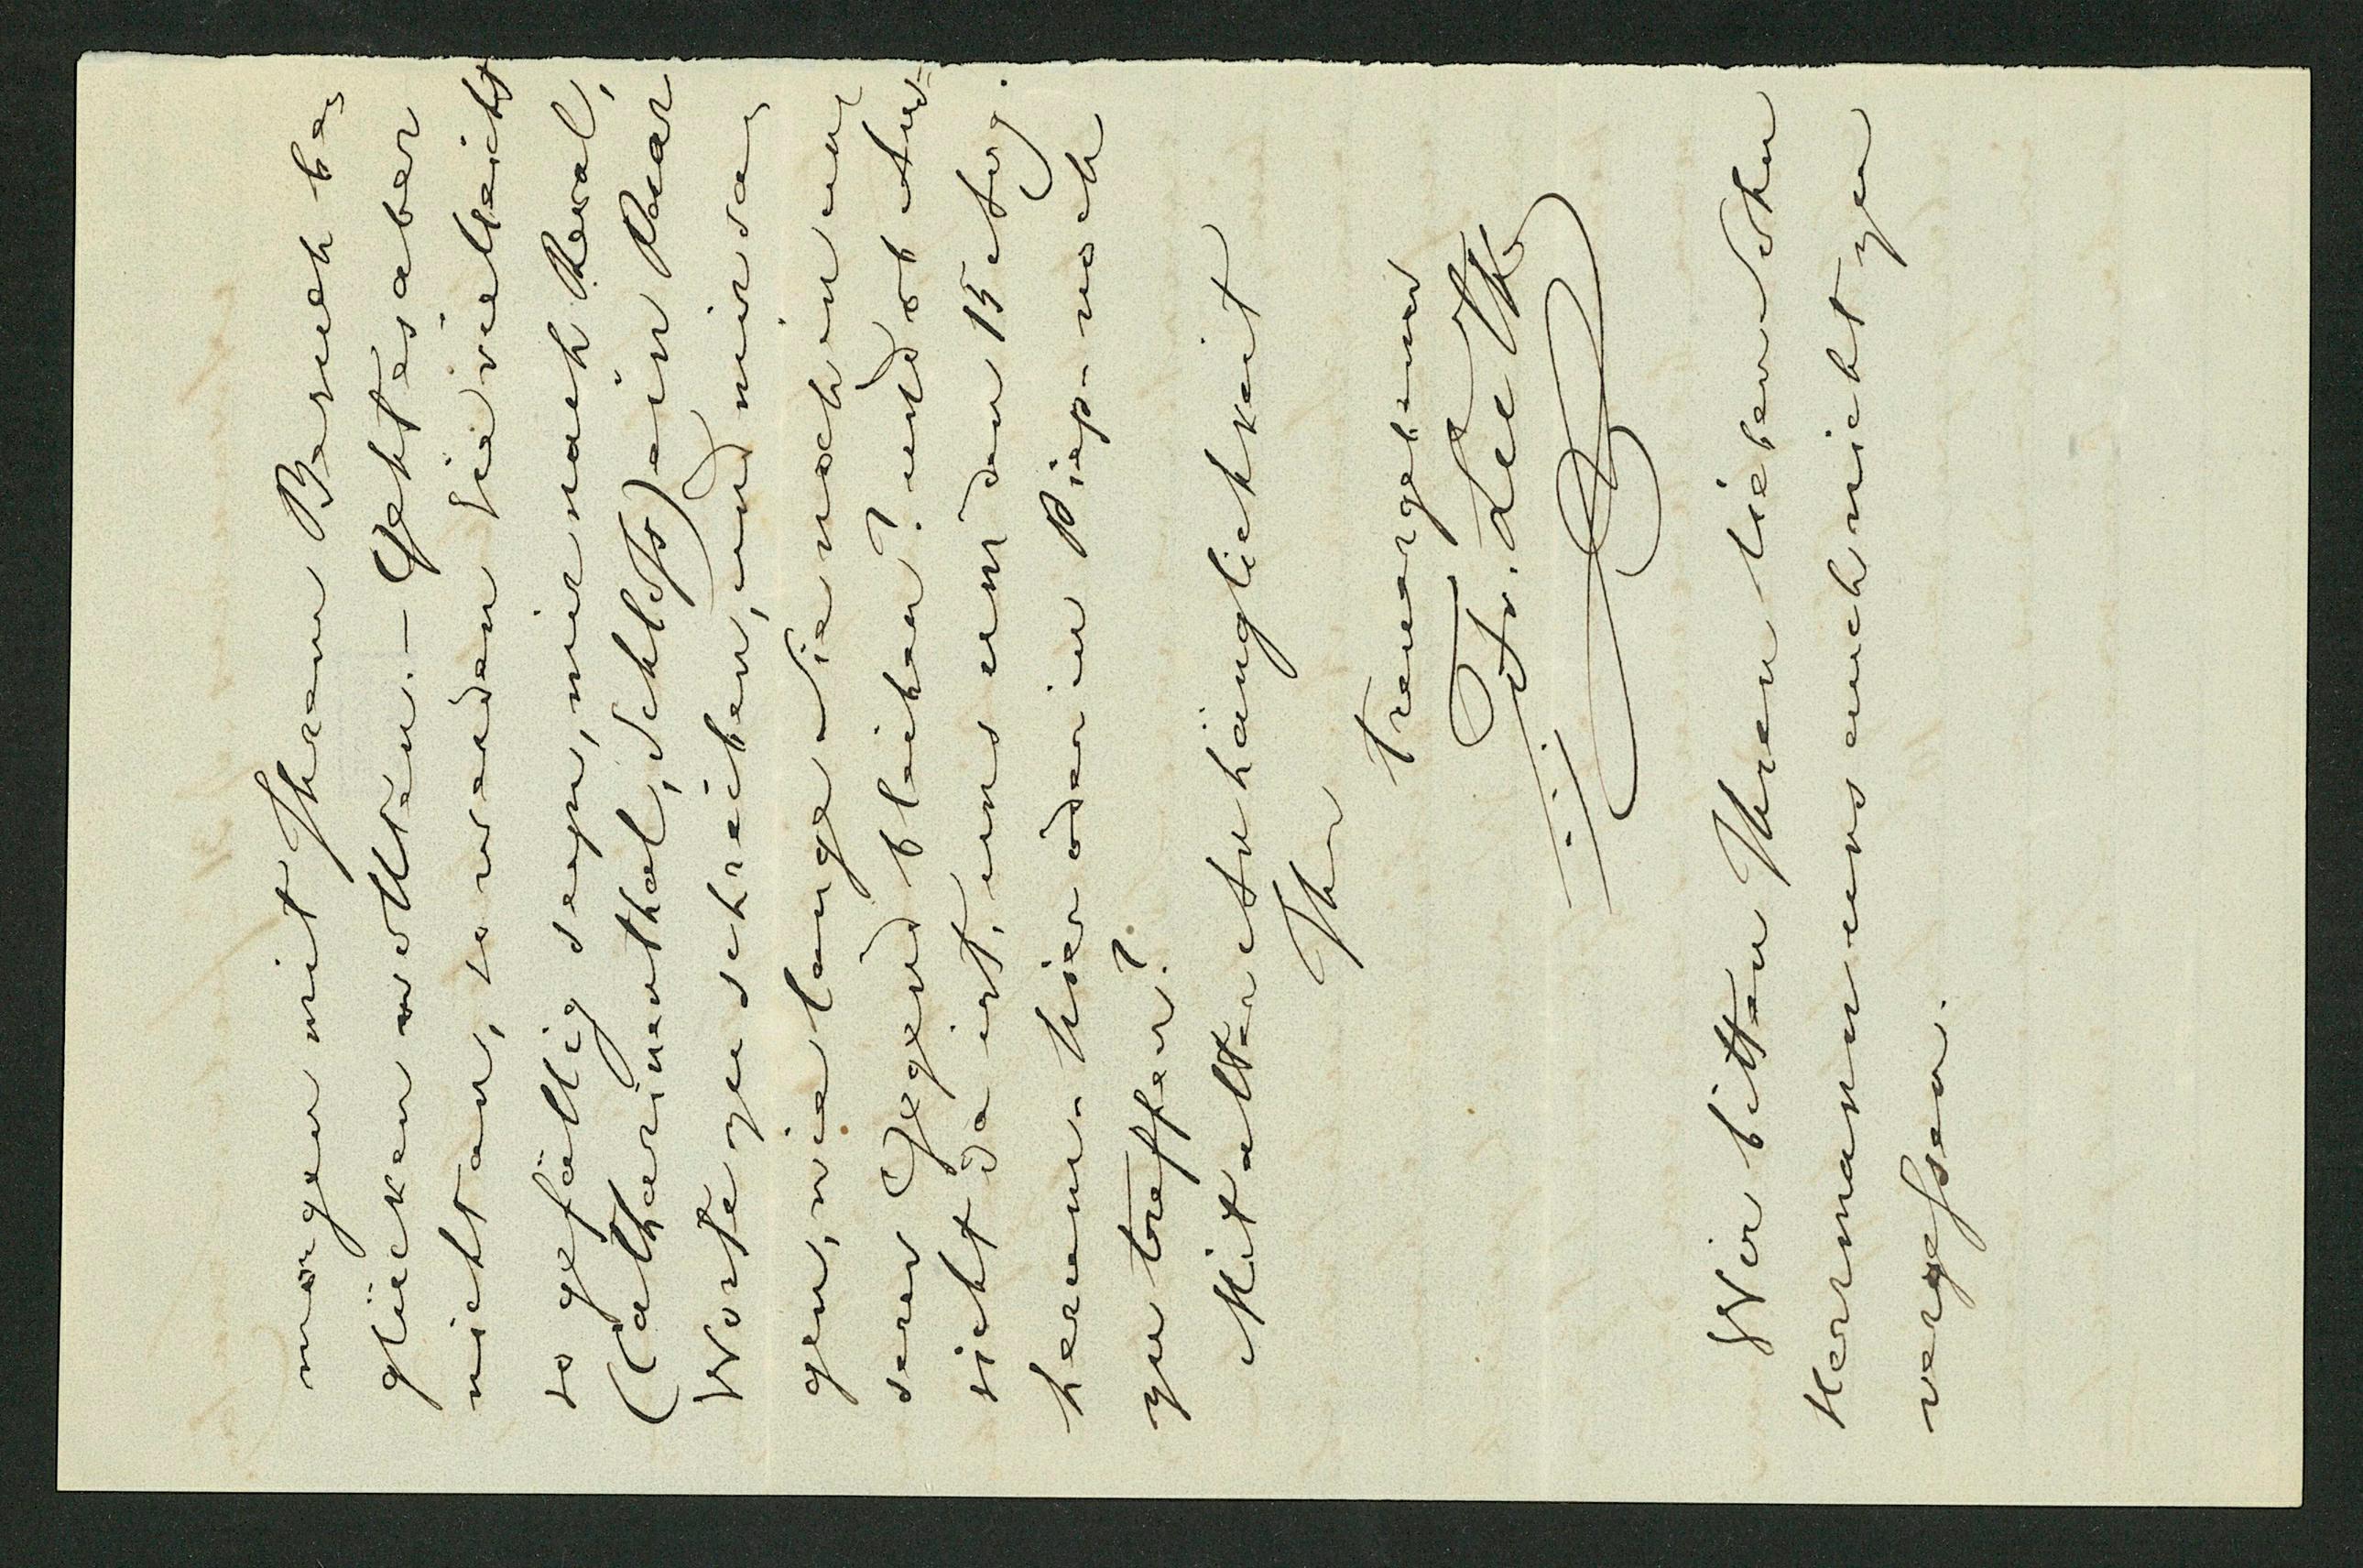 morgen mit Ihrem Besuch be-
glücken wollten. – Geht es aber
nicht an, so werden Sie vielleicht
so gefällig seyn, mir nach Reval,
(Catharinenthal, Schloß) ein Paar
Worte zu schreiben, und mir sa-
gen, wie lange Sie noch in un-
serer Gegend bleiben? und ob Aus-
sicht da ist, uns um den 15 Aug.
herum - hier oder in Riep - noch
zu treffen?
Mit alter Anhänglichkeit
Ihr
treuergebener
Fr. Lütke
Wir bitten Ihren lieben Sohn
Hermann uns auch nicht zu
vergessen.